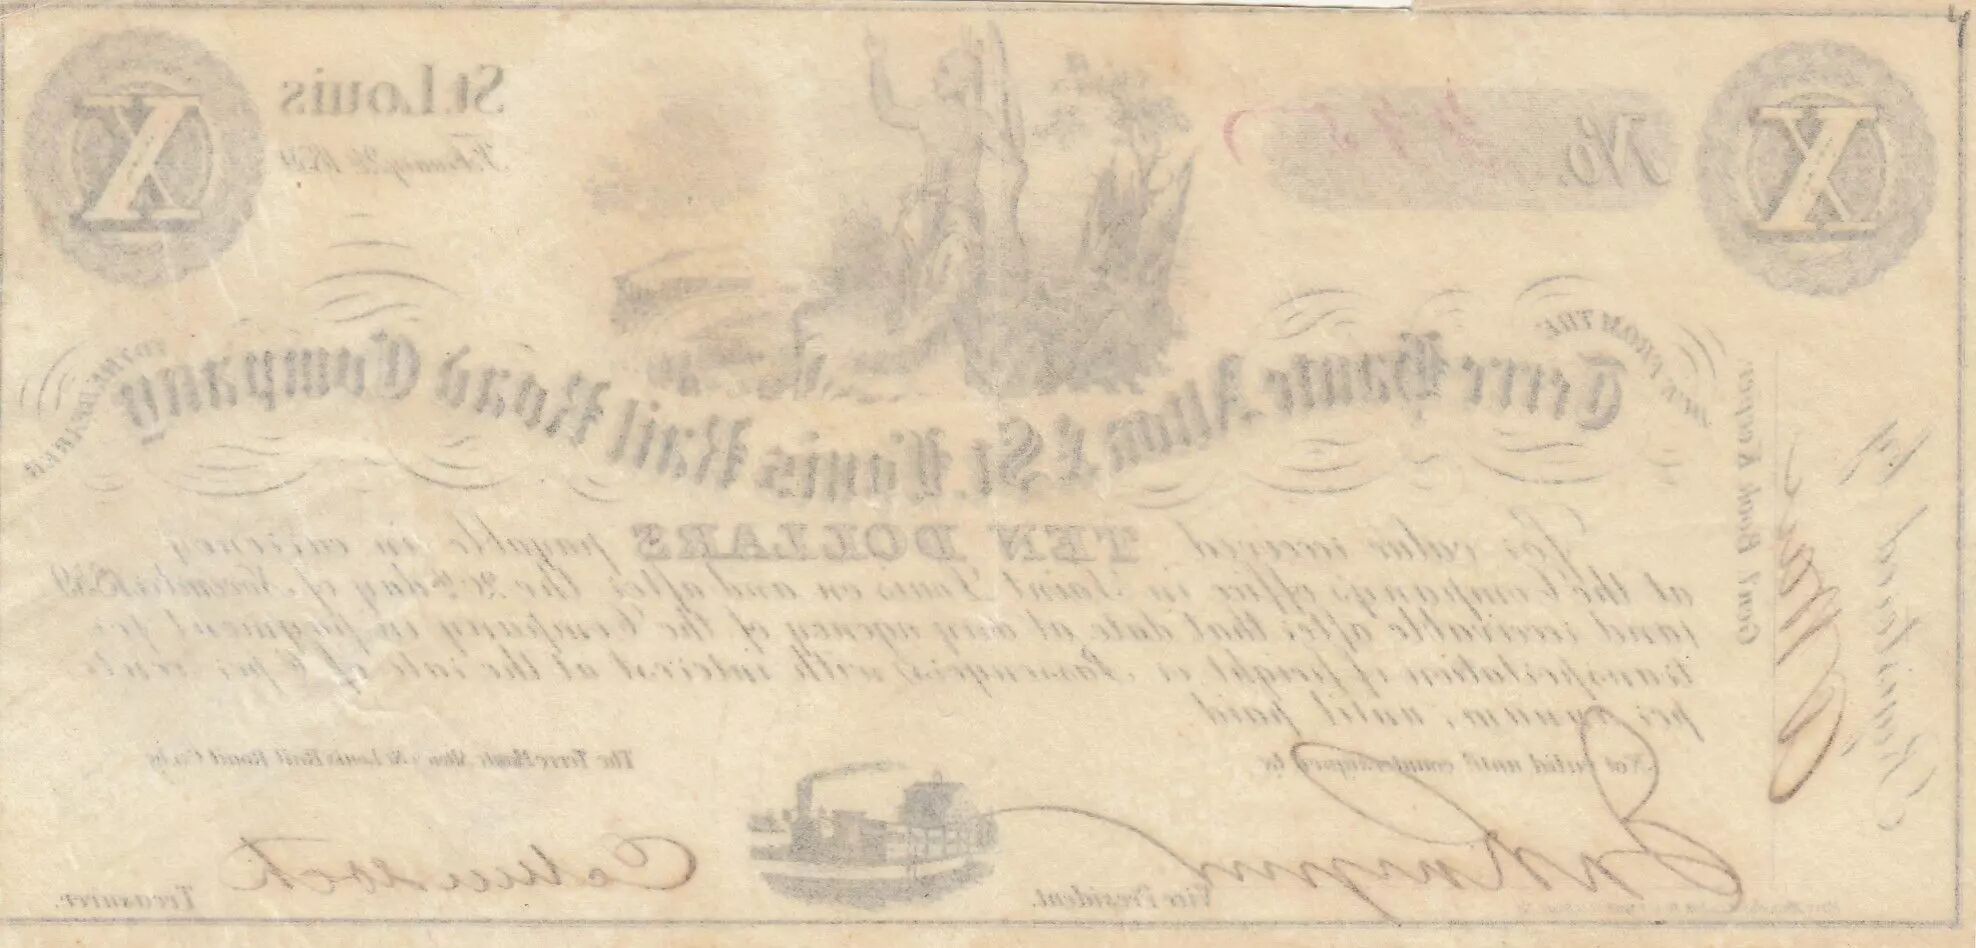 X
St. Louis
No.
X
DUE FROM THE
Terre Haute Alton & St. Louis Rail Road Company
TO THE BEARER
For value received TEN DOLLARS payable in currency
at the Company's office in Saint Louis on and after the day of November 1859
and receivable after that date at any agency of the Company in payment for
transportation of freight or Passengers, with interest at the rate of 6 per cent.
per annum, until paid.
Not valid until countersigned by
The Terre Haute Alton & St. Louis Rail Road Co. by
Vice President.
Treasurer.
Genl. Book Keeper
Printed